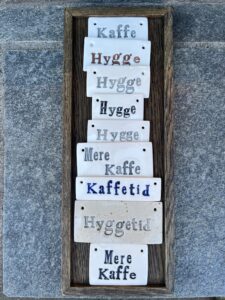 Kaffe
Hygge
Hygge
Hygge
Hygge
Mere
Kaffe
Kaffetid
Hyggetid
Mere
Kaffe